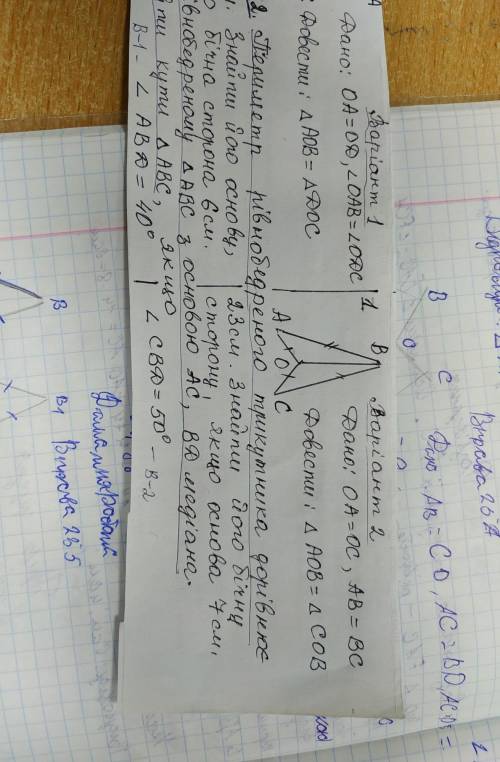 Варіант 1
Дано: OA=OD, ∠OAB=∠ODC
Довести: △AOB=△DOC
1
B
A
O
C
Варіант 2
Дано: OA=OC, AB=BC
Довести: △AOB=△COB
2. Периметр рівнобедреного трикутника дорівнює
23см. Знайти його бічну
сторону, якщо основа 7см.
Знайти його основу,
бічна сторона 8см.
рівнобедреному △ABC з основою AC, BD медіана.
кути △ABC, якщо
B-1- ∠ABD=40°
∠CBD=50° - B-2
Вправа
B
C
O
Дано: AB=CD, AC=BD,
B
B1
Вправа 285
Домашня робота